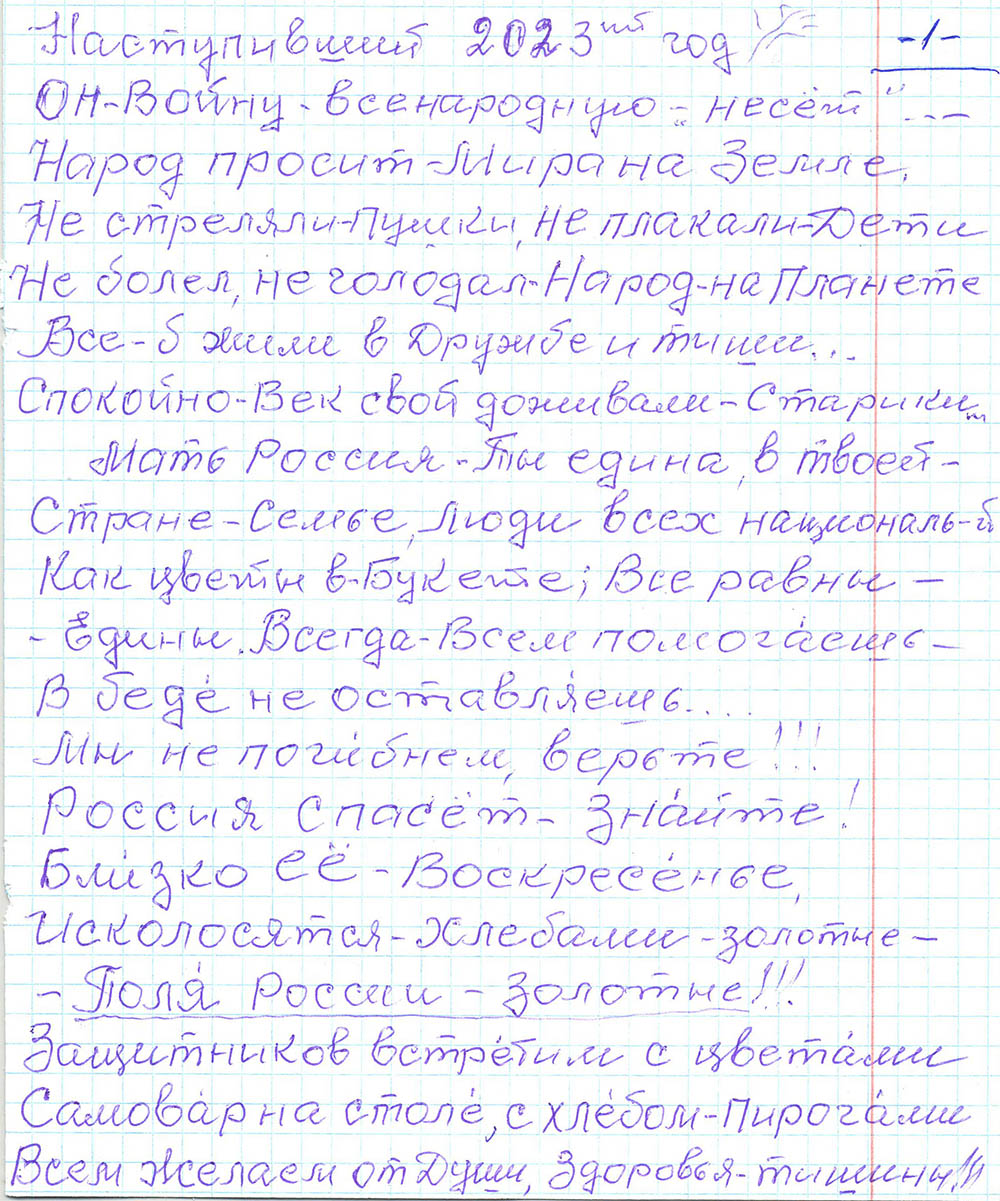 Наступивший 2023ий год -1-
Он-Войну-всенародную-„несёт"...—
Народ просит-Мира на Земле.
Не стреляли-Пушки, не плакали-Дети
Не болел, не голодал-Народ-на Планете
Все-б жили в Дружбе и тиши...
Спокойно-Век свой доживали-Старики...
Мать Россия-Ты едина, в твоей-
Стране-Семье, люди всех националь-й
Как цветы в-Букете; Все равны-
-Едины. Всегда-Всем помога́ешь-
В беде́ не оставля́ешь....
Мы не поги́бнем, верьте!!!
Россия Спасёт-Зна́йте!
Бли́зко ЕЁ-Воскресе́нье,
Исколосятся-Хлебами-золотые-
-Поля́ России-Золотые!!!
Защитников встре́тим с цвета́ми
Самова́р на столе́, с хле́бом-Пирога́ми
Всем Желаем от Души, Здоровья-тишины!!!